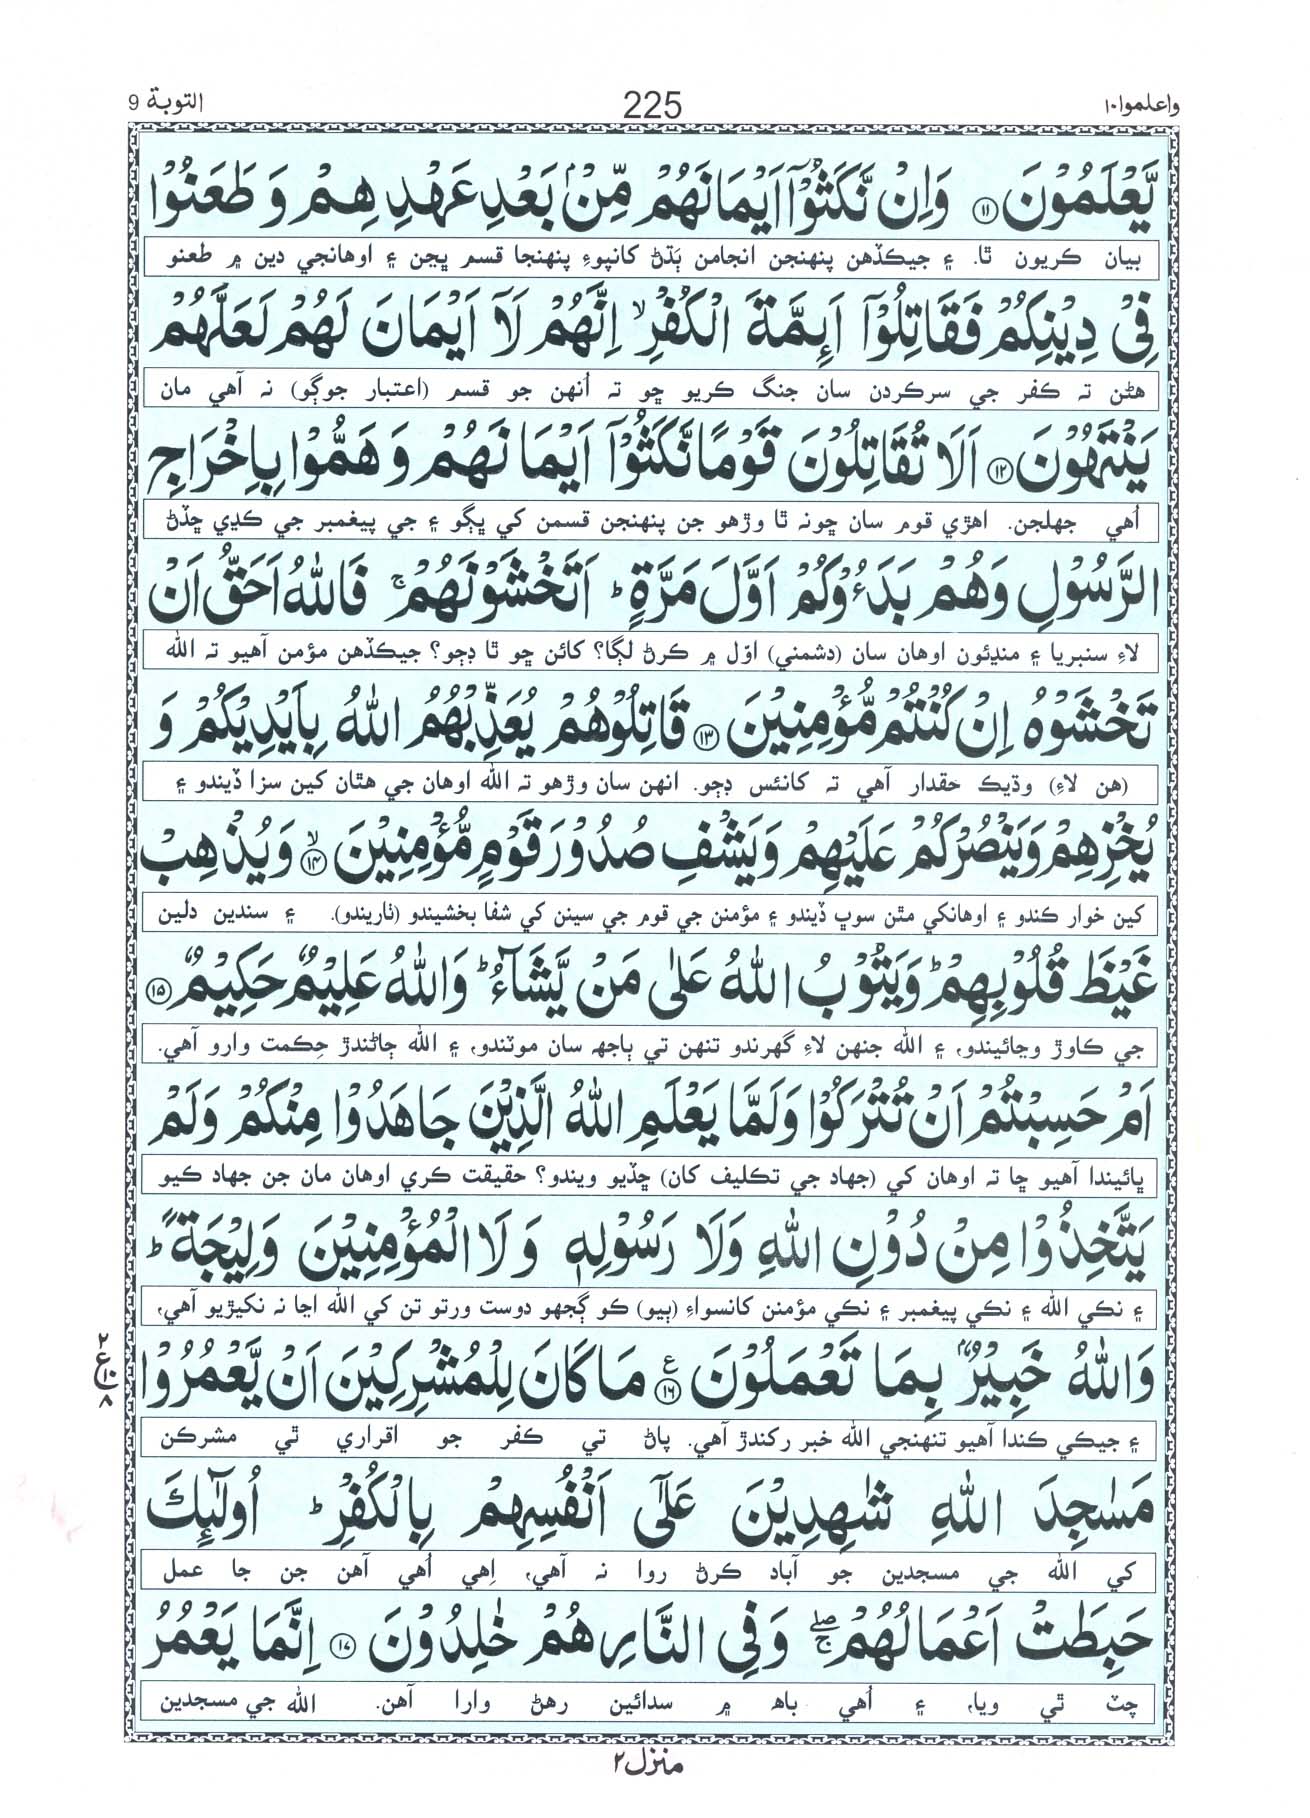 واعلموا١٠ 225 التوبة 9
يَّعْلَمُوْنَ ۝١١ وَاِنْ نَّكَثُوْۤا اَيْمَانَهُمْ مِّنْۢ بَعْدِ عَهْدِهِمْ وَطَعَنُوْا
بيان ڪريون ٿا. ۽ جيڪڏهن پنهنجن انجامن ٻَڌڻ کانپوءِ پنهنجا قسم ڀڃن ۽ اوهانجي دين ۾ طعنو
فِیْ دِيْنِكُمْ فَقَاتِلُوْۤا اَىِٕمَّةَ الْكُفْرِ ۙ اِنَّهُمْ لَاۤ اَيْمَانَ لَهُمْ لَعَلَّهُمْ
هڻن تہ ڪفر جي سرڪردن سان جنگ ڪريو ڇو تہ اُنهن جو قسم (اعتبار جوڳو) نہ آهي مان
يَنْتَهُوْنَ ۝١٢ اَلَا تُقَاتِلُوْنَ قَوْمًا نَّكَثُوْۤا اَيْمَانَهُمْ وَهَمُّوْا بِاِخْرَاجِ
اُهي جهلجن. اهڙي قوم سان ڇونہ ٿا وڙهو جن پنهنجن قسمن کي ڀڳو ۽ جي پيغمبر جي ڪڍي ڇڏڻ
الرَّسُوْلِ وَهُمْ بَدَءُوْكُمْ اَوَّلَ مَرَّةٍ ؕ اَتَخْشَوْنَهُمْ ۚ فَاللّٰهُ اَحَقُّ اَنْ
لاءِ سنبريا ۽ منڍئون اوهان سان (دشمني) اوّل ۾ ڪرڻ لڳا؟ کائن ڇو ٿا ڊڄو؟ جيڪڏهن مؤمن آهيو تہ الله
تَخْشَوْهُ اِنْ كُنْتُمْ مُّؤْمِنِيْنَ ۝١٣ قَاتِلُوْهُمْ يُعَذِّبْهُمُ اللّٰهُ بِاَيْدِيْكُمْ وَ
(هن لاءِ) وڌيڪ حقدار آهي تہ کانئس ڊڄو. انهن سان وڙهو تہ الله اوهان جي هٿان کين سزا ڏيندو ۽
يُخْزِهِمْ وَيَنْصُرْكُمْ عَلَيْهِمْ وَيَشْفِ صُدُوْرَ قَوْمٍ مُّؤْمِنِيْنَ ۙ۝١٤ وَيُذْهِبْ
کين خوار ڪندو ۽ اوهانکي مٿن سوڀ ڏيندو ۽ مؤمنن جي قوم جي سينن کي شفا بخشيندو (ٺاريندو). ۽ سندين دلين
غَيْظَ قُلُوْبِهِمْ ؕ وَيَتُوْبُ اللّٰهُ عَلٰى مَنْ يَّشَآءُ ؕ وَاللّٰهُ عَلِيْمٌ حَكِيْمٌ ۝١٥
جي ڪاوڙ وڃائيندو، ۽ الله جنهن لاءِ گهرندو تنهن تي ٻاجھ سان موٽندو، ۽ الله ڄاڻندڙ حِڪمت وارو آهي.
اَمْ حَسِبْتُمْ اَنْ تُتْرَكُوْا وَلَمَّا يَعْلَمِ اللّٰهُ الَّذِيْنَ جَاهَدُوْا مِنْكُمْ وَلَمْ
ڀائيندا آهيو ڇا تہ اوهان کي (جهاد جي تڪليف کان) ڇڏيو ويندو؟ حقيقت ڪري اوهان مان جن جهاد ڪيو
يَتَّخِذُوْا مِنْ دُوْنِ اللّٰهِ وَلَا رَسُوْلِهٖ وَلَا الْمُؤْمِنِيْنَ وَلِيْجَةً ؕ
۽ نڪي الله ۽ نڪي پيغمبر ۽ نڪي مؤمنن کانسواءِ (ٻيو) ڪو ڳجهو دوست ورتو تن کي الله اڃا نہ نکيڙيو آهي،
وَاللّٰهُ خَبِيْرٌۢ بِمَا تَعْمَلُوْنَ ۝١٦ ع مَا كَانَ لِلْمُشْرِكِيْنَ اَنْ يَّعْمُرُوْا
٢ ع ١٠ ٨
۽ جيڪي ڪندا آهيو تنهنجي الله خبر رکندڙ آهي. پاڻ تي ڪفر جو اقراري ٿي مشرڪن
مَسٰجِدَ اللّٰهِ شٰهِدِيْنَ عَلٰۤى اَنْفُسِهِمْ بِالْكُفْرِ ؕ اُولٰٓىِٕكَ
کي الله جي مسجدين جو آباد ڪرڻ روا نہ آهي، اِهي اُهي آهن جن جا عمل
حَبِطَتْ اَعْمَالُهُمْ ۚۖ وَفِی النَّارِ هُمْ خٰلِدُوْنَ ۝١٧ اِنَّمَا يَعْمُرُ
چٽ ٿي ويا، ۽ اُهي باھ ۾ سدائين رهڻ وارا آهن. الله جي مسجدين
منزل٢